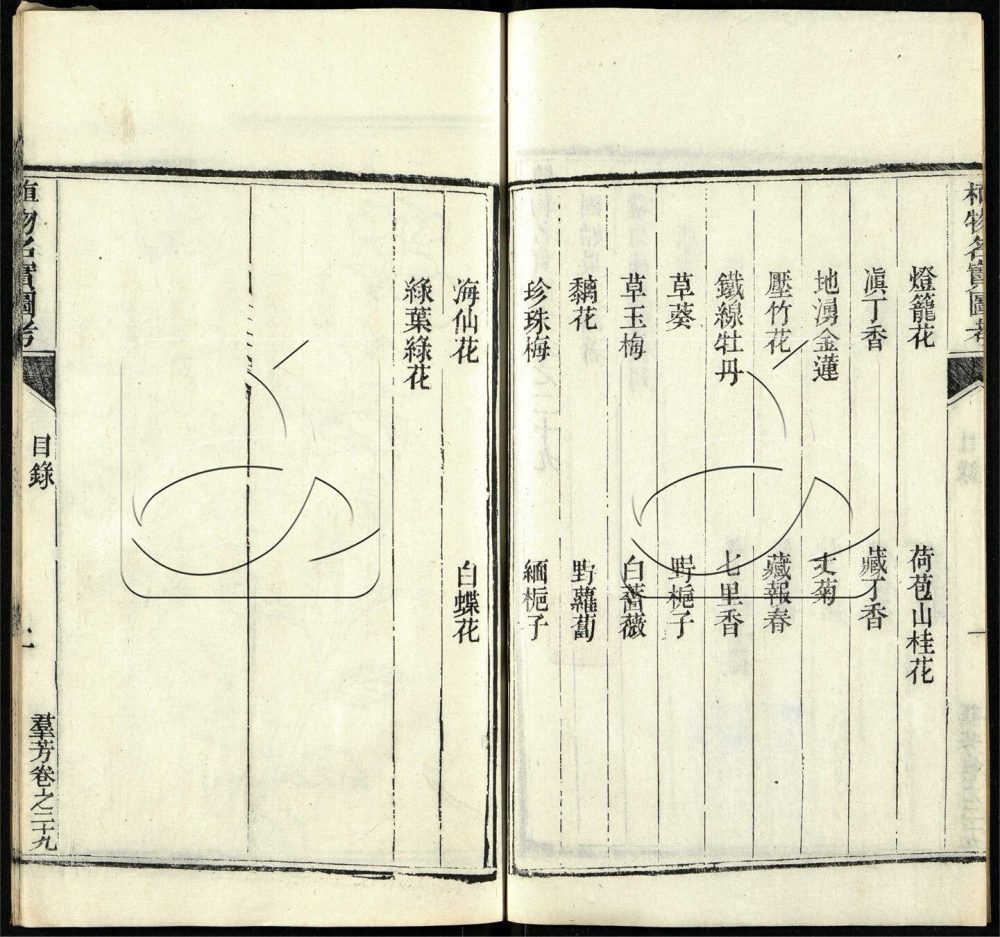 植物名實圖考
一
燈籠花 荷苞山桂花
滇丁香 藏丁香
地湧金蓮 丈菊
壓竹花 藏報春
鐵線牡丹 七里香
草葵 野梔子
草玉梅 白薔薇
鸝花 野蘿蔔
珍珠梅 緬梔子
海仙花 白蝶花
綠葉綠花
植物名實圖考
目錄
羣芳卷之二十九